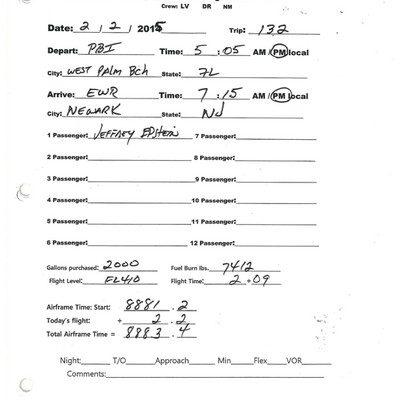 Crew: LV DR NM
Date: 2 / 2 / 2015 Trip: 132
Depart: PBI Time: 5 : 05 AM / PM local
City: WEST PALM BCH State: FL
Arrive: EWR Time: 7 : 15 AM / PM local
City: NEWARK State: NJ
1 Passenger: JEFFREY EPSTEIN 7 Passenger:
2 Passenger: 8 Passenger:
3 Passenger: 9 Passenger:
4 Passenger: 10 Passenger:
5 Passenger: 11 Passenger:
6 Passenger: 12 Passenger:
Gallons purchased: 2000 Fuel Burn lbs. 7412
Flight Level: FL410 Flight Time: 2 + 09
Airframe Time: Start: 8881 . 2
Today's flight: + 2 . 2
Total Airframe Time = 8883 . 4
Night: T/O Approach Min Flex VOR
Comments: